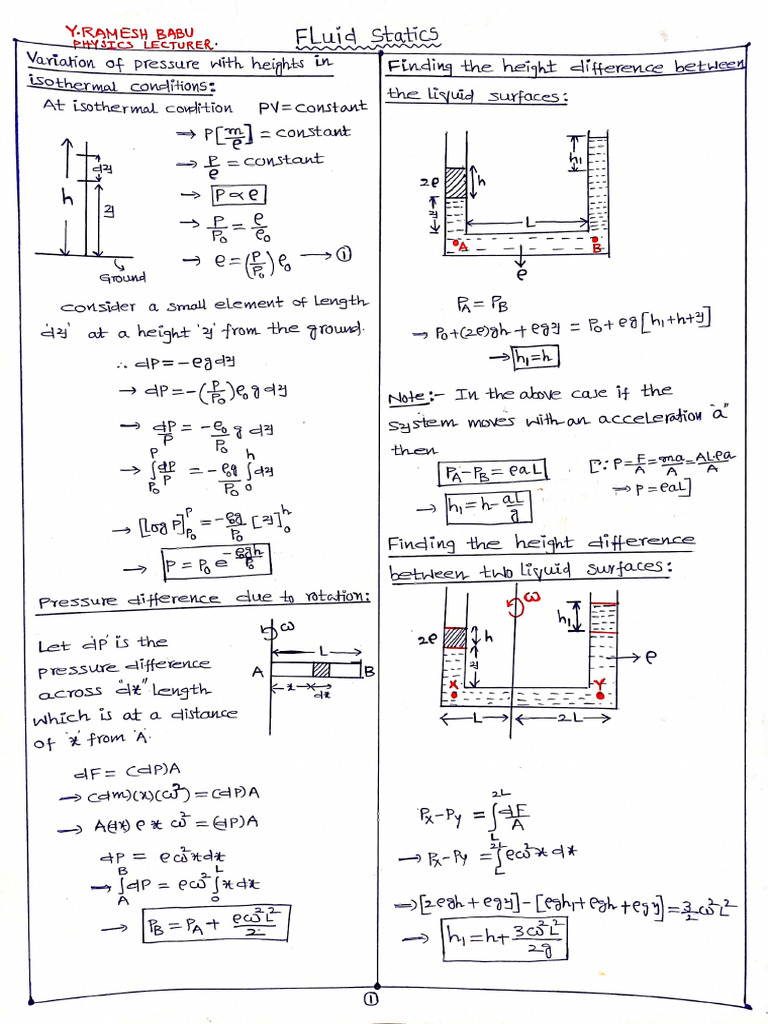 Y.RAMESH BABU
PHYSICS LECTURER.
FLuid Statics
Variation of pressure with heights in
isothermal conditions:
At isothermal condition PV = constant
→ P[m/ρ] = constant
→ P/ρ = constant
→ P ∝ ρ
→ P/P₀ = ρ/ρ₀
→ ρ = (P/P₀) ρ₀ → ①
h
dy
y
Ground
Consider a small element of length
'dy' at a height 'y' from the ground.
∴ dP = -ρg dy
→ dP = -(P/P₀) ρ₀ g dy
→ dP/P = -ρ₀/P₀ g dy
→ ∫_P₀^P dP/P = -ρ₀g/P₀ ∫_0^h dy
→ [log P]_P₀^P = -ρg/P₀ [y]_0^h
→ P = P₀ e^(-ρgh/P₀)
Pressure difference due to rotation:
Let 'dP' is the
pressure difference
across "dx" length
which is at a distance
of 'x' from 'A'.
ω
L
A
B
x
dx
dF = (dP)A
→ (dm)(x)(ω²) = (dP)A
→ A(dx) ρ x ω² = (dP)A
dP = ρω²x dx
→ ∫_A^B dP = ρω² ∫_0^L x dx
→ P_B = P_A + ρω²L²/2
Finding the height difference between
the liquid surfaces:
2ρ
h
h₁
y
L
A
B
ρ
P_A = P_B
→ P₀ + (2ρ)gh + ρgy = P₀ + ρg[h₁ + h + y]
→ h₁ = h
Note:- In the above case if the
system moves with an acceleration "a"
then
P_A - P_B = ρaL
[∵ P = F/A = ma/A = ALρa/A
→ P = ρaL]
→ h₁ = h - aL/g
Finding the height difference
between two liquid surfaces:
ω
2ρ
h
h₁
y
ρ
X
Y
L
2L
P_x - P_y = ∫_L^2L dF/A
→ P_x - P_y = ∫_L^2L ρω²x dx
→ [2ρgh + ρgy] - [ρgh₁ + ρgh + ρgy] = 3/2 ω²L²
→ h₁ = h + 3ω²L²/2g
①